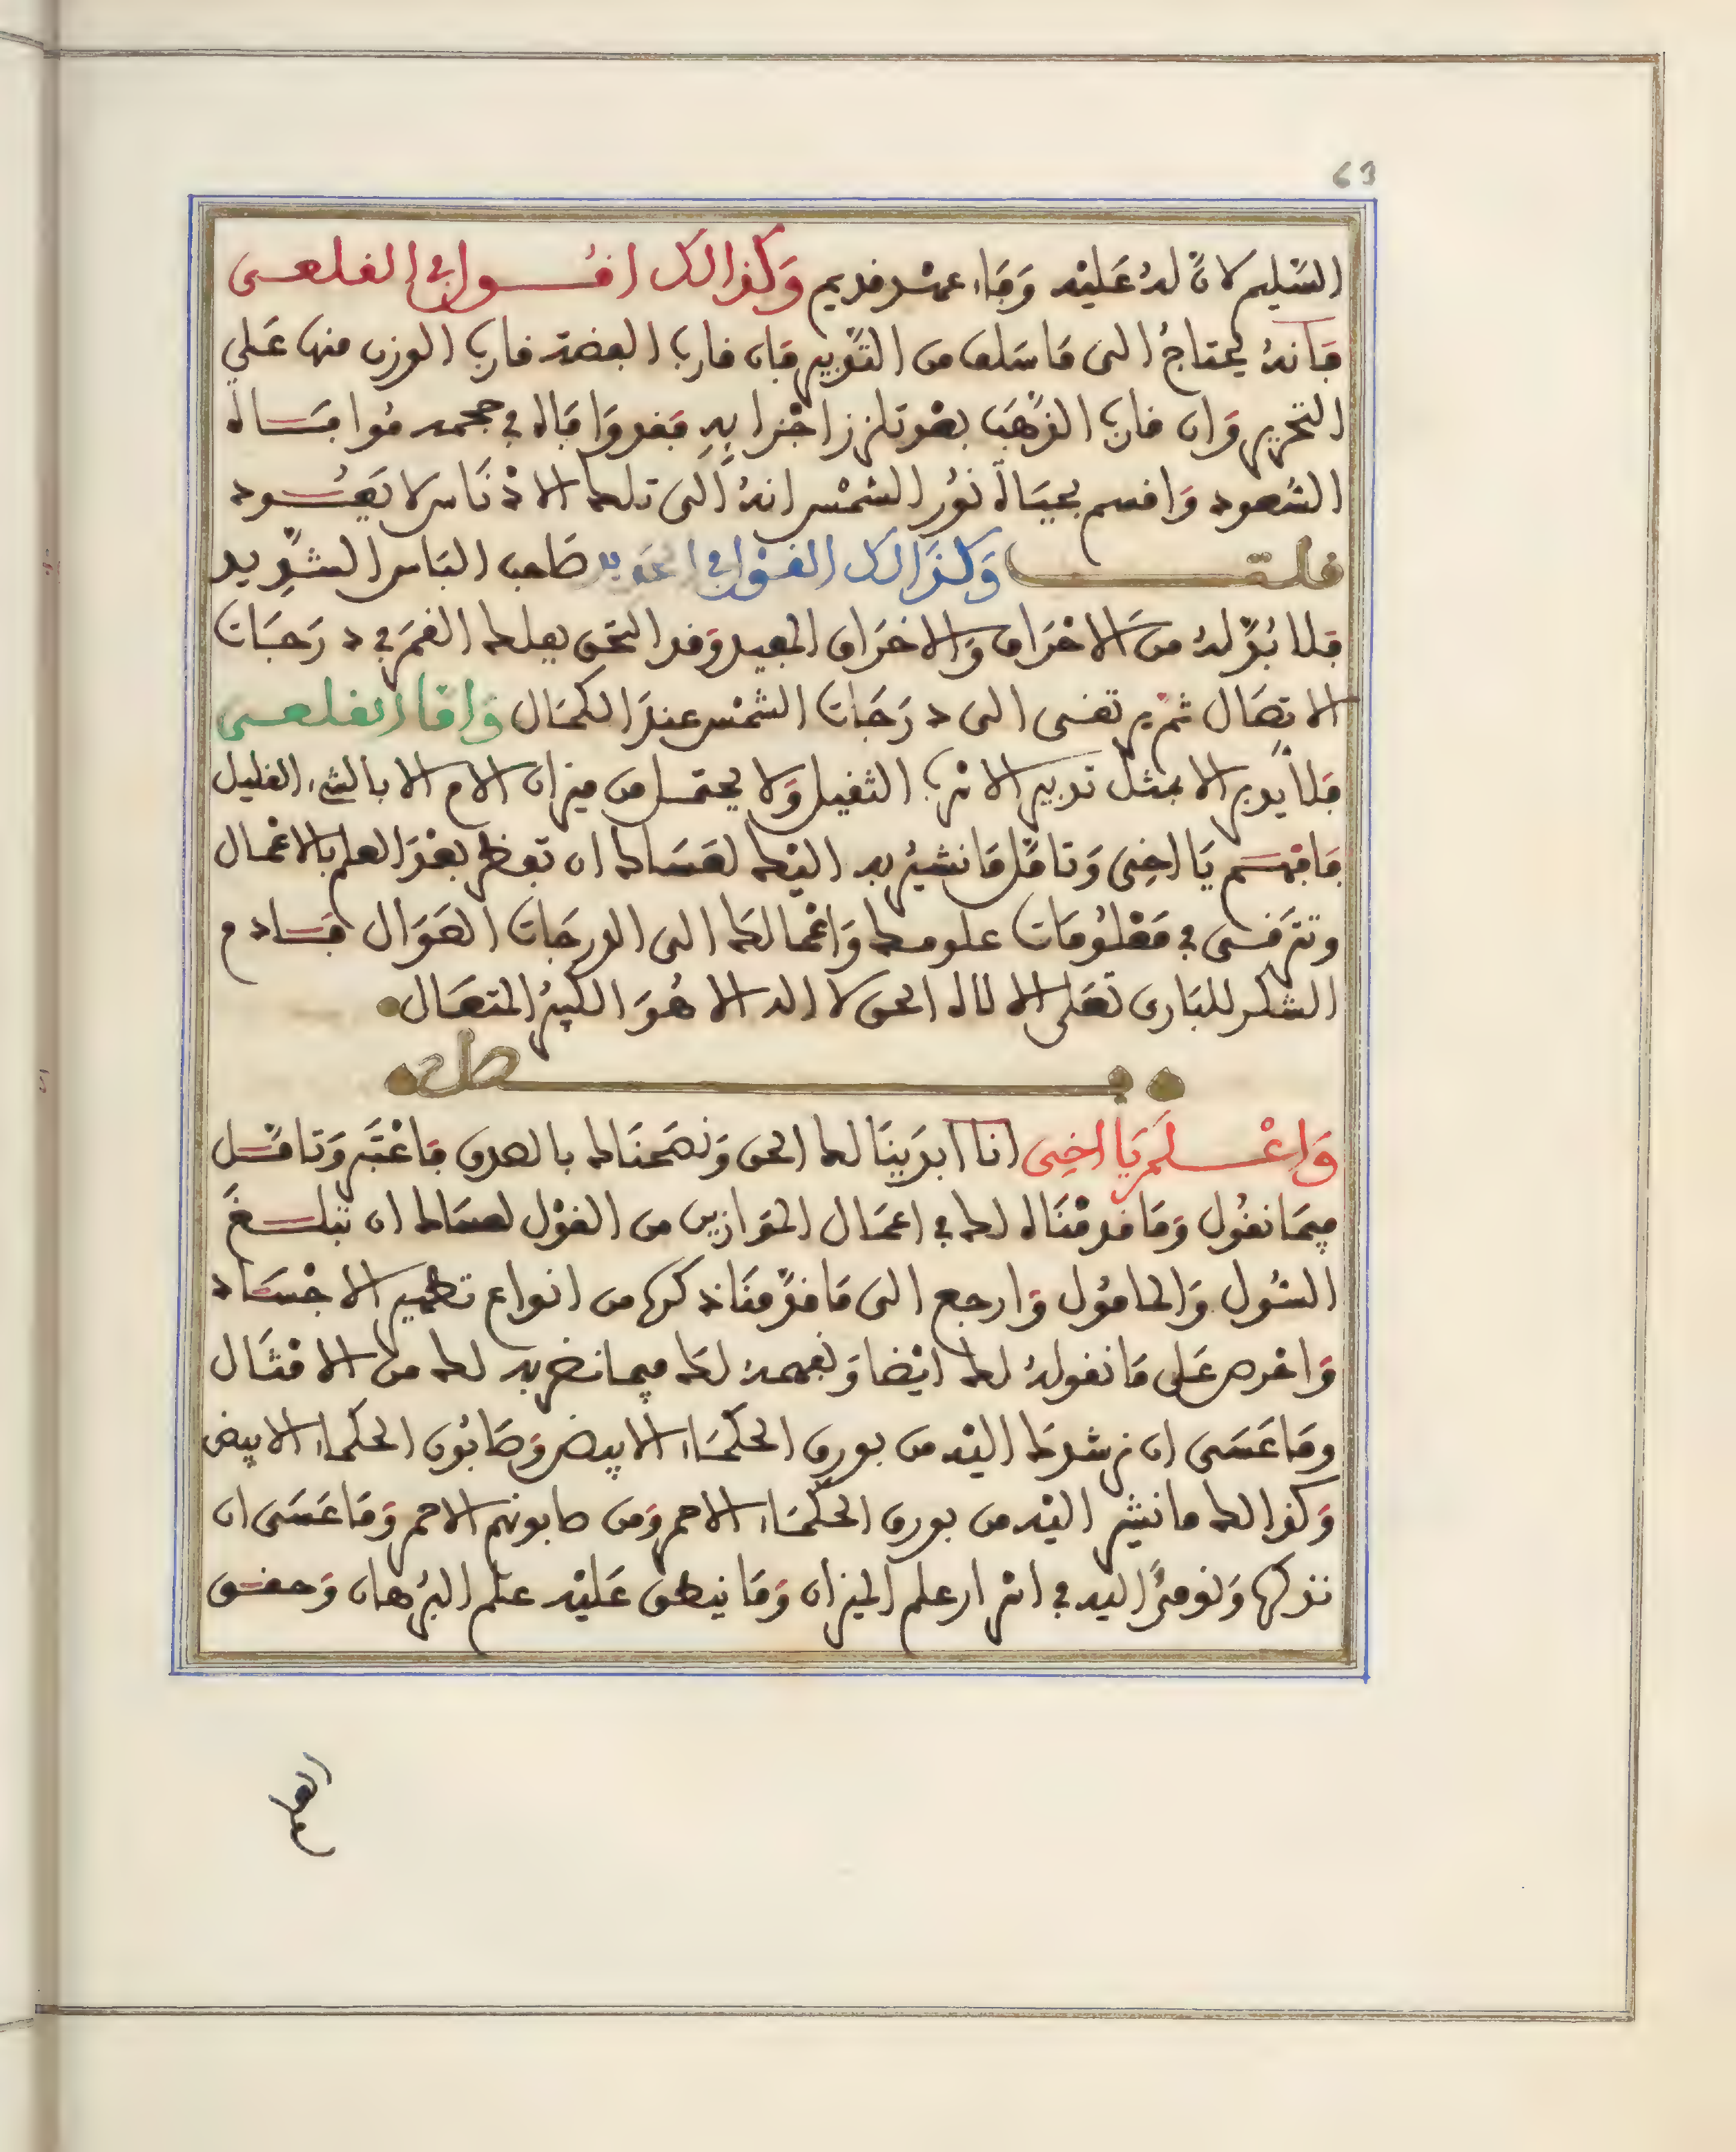 63
السليم لان له عليه وفاء عهد قديم وكذالك اقول في القلعي
فانه يحتاج الى ما سلف من التدبير فان قارب الفضة قارب الوزن منها على
التحرير وان قارب الذهب بعد تلزز اجزايه فقد وافاه في حجمه موافاة
السعود واقسم بحياة نور الشمس انه الى تلك الادناس لا يعود
قلت وكذالك القول في الحديد صاحب الباس الشديد
فلا بد له من الاحراق والاحراق المعيد وقد التحق بفلك القمر في درجات
الاتصال ثم يرتقى الى درجات الشمس عند الكمال واما القلعي
فلا يدبر الا بمثل تدبير الانك الثقيل ولا يحتمل من ميزان الام الا بالشيء القليل
فافهم يا اخي وتامل ما نشير به اليك لعساك ان تحظ بعد العلم بالاعمال
وتترقى في معلومات علومك واعمالك الى الدرجات العوال فسادم
الشكر للبارى تعلى الالاه الحق لا اله الا هو الكبير المتعال
فصل
واعلم يا اخي انا ابدينا لك الحق ونصحناك بالصدق فاعتبر وتامل
فيما نقول وما قدمناه لك في اعمال الموازين من القول لعساك ان تبلغ
السول والمامول وارجع الى ما قدمنا ذكرها من انواع تطهير الاجساد
واحرص على ما نقوله لك ايضا ونفهمه لك فيما نضربه لك من الامثال
وما عسى ان نرشدك اليه من بورق الحكماء الابيض وصابون الحكماء الابيض
وكذالك ما نشير اليه من بورق الحكماء الاحمر ومن صابونهم الاحمر وما عسى ان
نذكرها ونومئ اليه في اسرار علم الميزان وما ينطق عليه علم البرهان وحقق
العلم